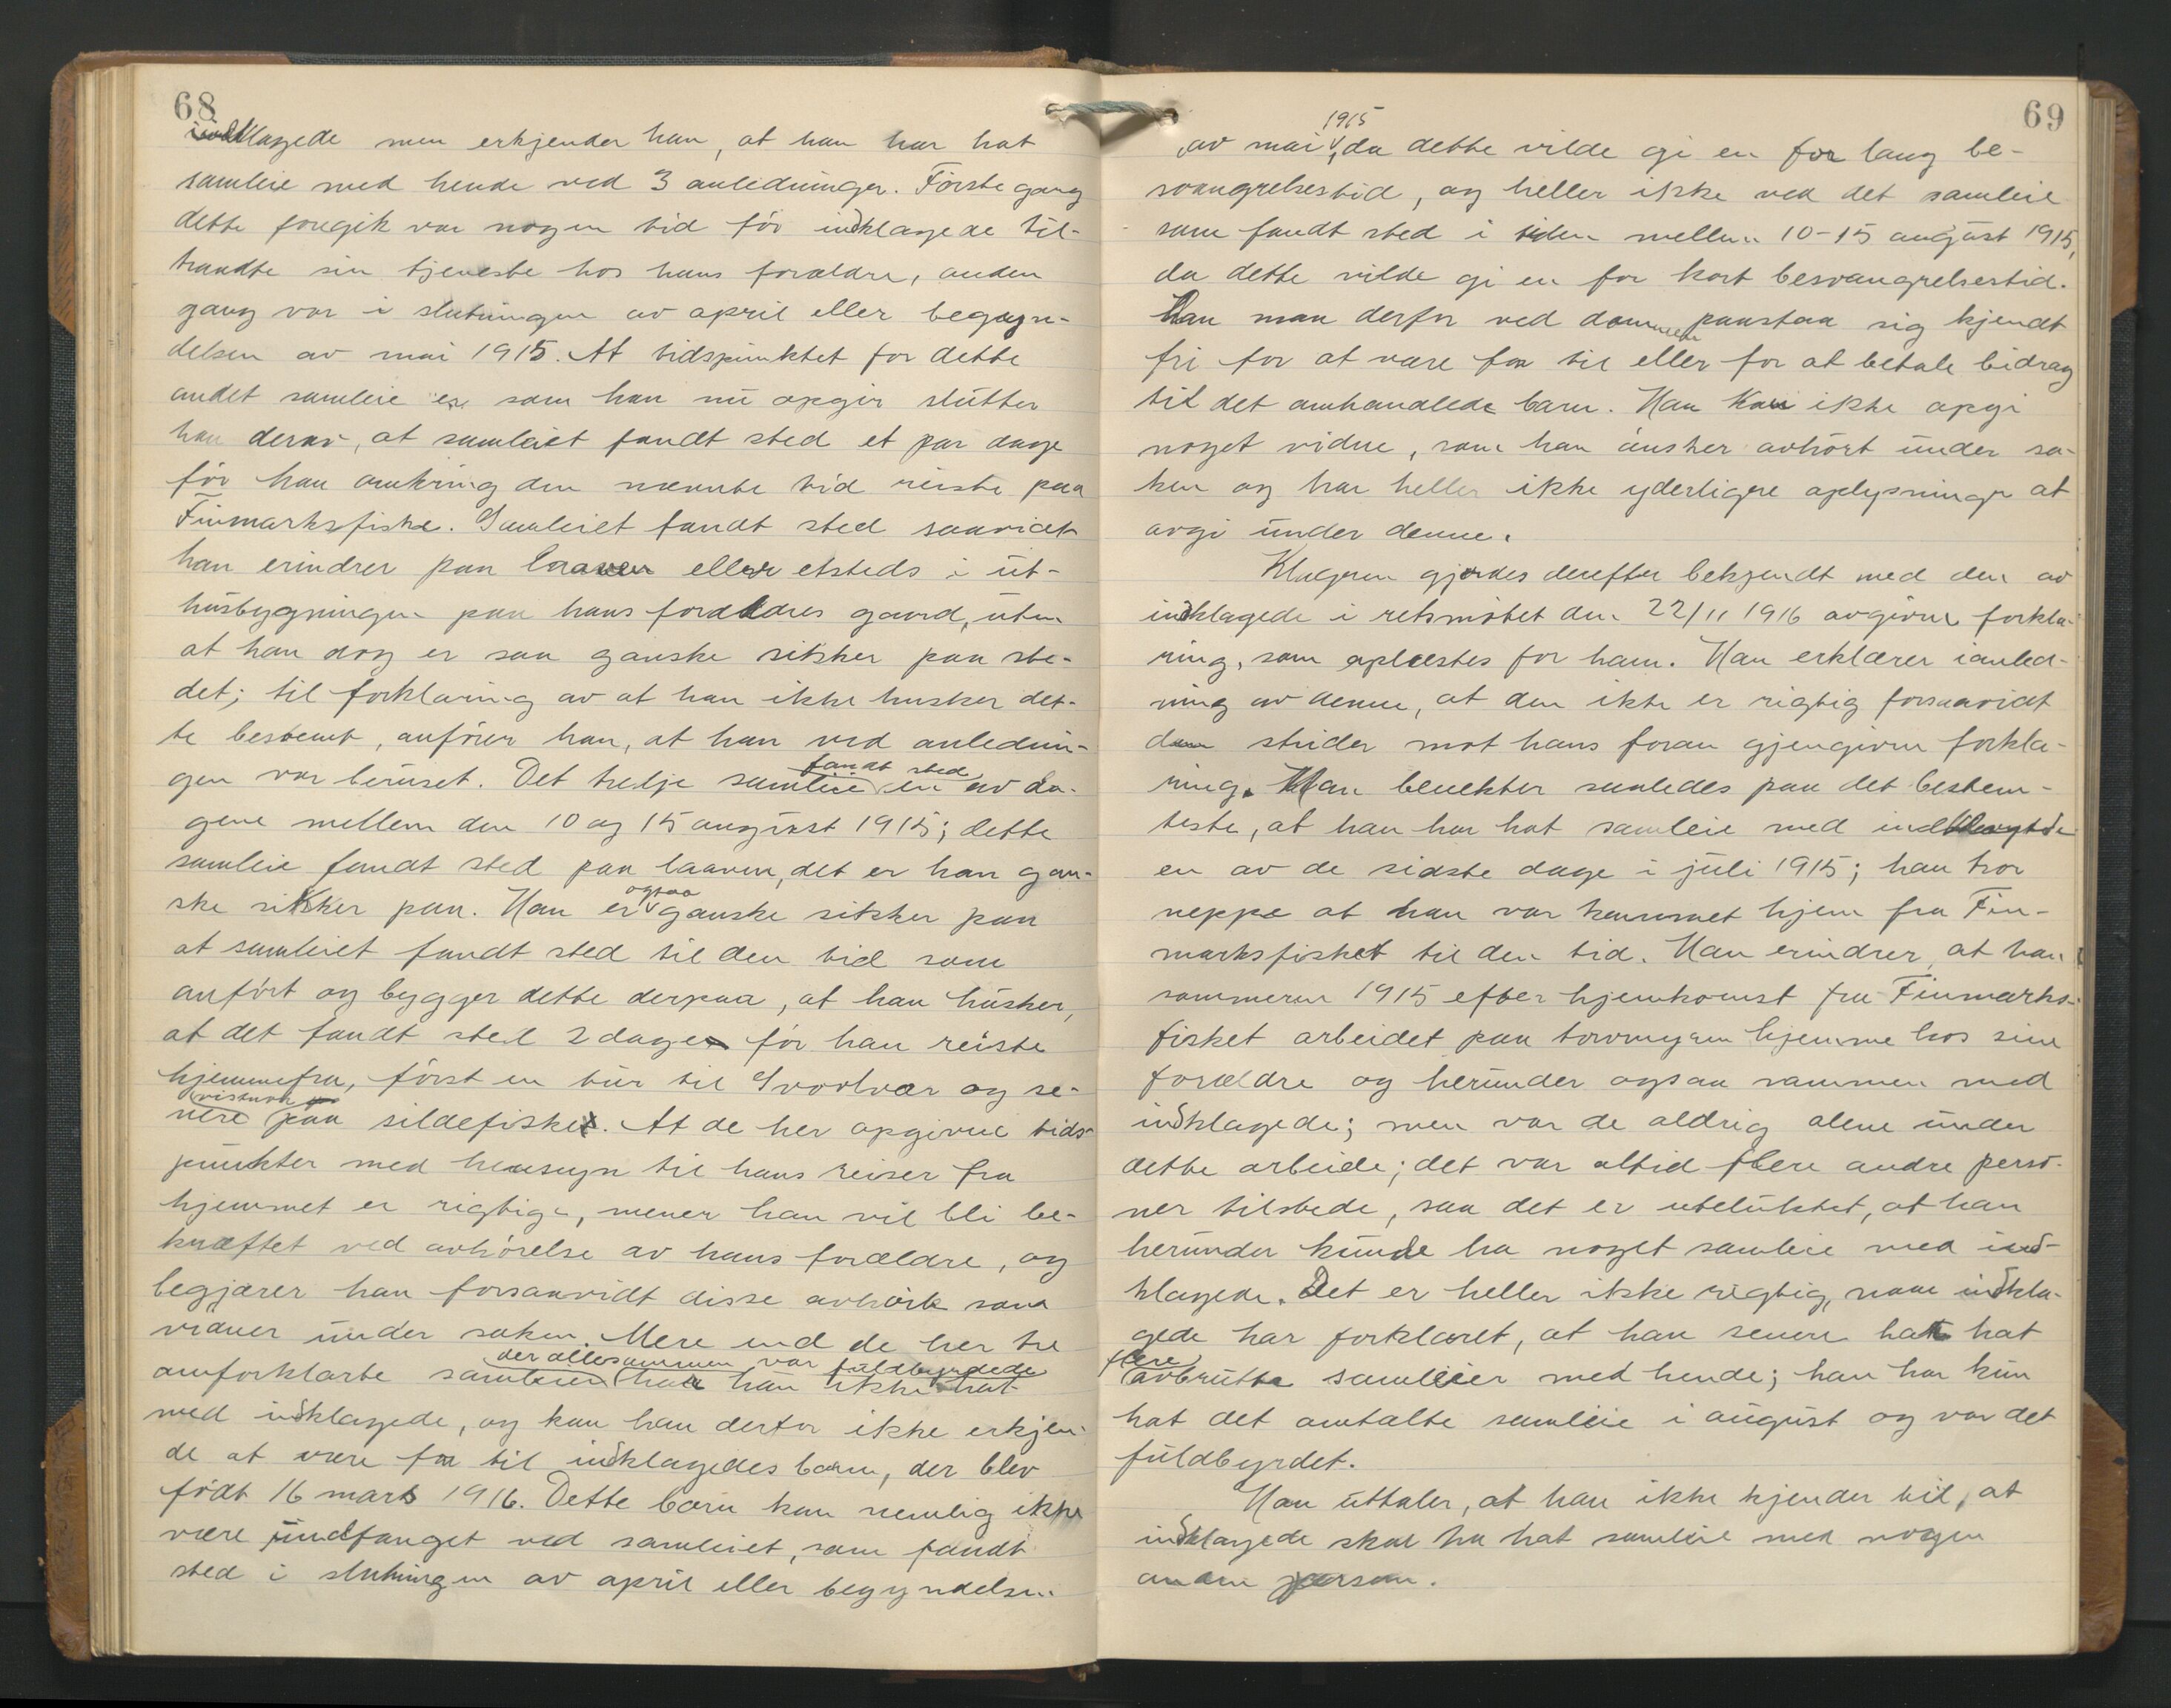 68
indklagede men erkjender han, at han har hat
samleie med hende ved 3 anledninger. Første gang
dette foregik var nogen tid før indklagede til-
traadte sin tjeneste hos hans forældre, anden
gang var i slutningen av april eller begyn-
delsen av mai 1915. At tidspunktet for dette
andet samleie er som han nu opgir slutter
han derav, at samleiet fandt sted et par dage
før han omkring den nævnte tid reiste paa
Finmarksfiske. Samleiet fandt sted saavidt
han erindrer paa laaven eller etsteds i ut-
husbygningen paa hans forældres gaard, uten
at han dog er saa ganske sikker paa ste-
det; til forklaring av at han ikke husker det-
te bestemt, anfører han, at han ved anlednin-
gen var beruset. Det tredje samleie fandt sted en av da-
gene mellem den 10 og 15 august 1915; dette
samleie fandt sted paa laaven, det er han gan-
ske sikker paa. Han er ogsaa ganske sikker paa
at samleiet fandt sted til den tid som
anført og bygger dette derpaa, at han husker,
at det fandt sted 2 dage før han reiste
hjemmefra, først en tur til Svolvær og se-
nere vistnok paa sildefiske. At de her opgivne tids-
punkter med hensyn til hans reiser fra
hjemmet er rigtige, mener han vil bli be-
kræftet ved avhørelse av hans forældre, og
begjærer han forsaavidt disse avhørt som
vidner under saken. Mere end de her tre
omforklarte samleier der allesammen var fuldbyrdede har han ikke hat
med indklagede, og kan han derfor ikke erkjen-
de at være far til indklagedes barn, der blev
født 16 mars 1916. Dette barn kan nemlig ikke
være undfanget ved samleiet, som fandt
sted i slutningen av april eller begyndelsen
69
av mai 1915, da dette vilde gi en for lang be-
svangrelsestid, og heller ikke ved det samleie
som fandt sted i tiden mellem 10-15 august 1915,
da dette vilde gi en for kort besvangrelsestid.
Han maa derfor ved dommen paastaa sig kjendt
fri for at være far til eller for at betale bidrag
til det omhandlede barn. Han kan ikke opgi
noget vidne, som han ønsker avhørt under sa-
ken og har heller ikke yderligere oplysninger at
avgi under denne.
Klageren gjordes derefter bekjendt med den av
indklagede i retsmøtet den 22/11 1916 avgivne forkla-
ring, som oplæstes for ham. Han erklærer i anled-
ning av denne, at den ikke er rigtig forsaavidt
den strider mot hans foran gjengivne forkla-
ring. Han benekter saaledes paa det bestem-
teste, at han har hat samleie med indklagede
en av de sidste dage i juli 1915; han tror
neppe at han var kommet hjem fra Fin-
marksfisket til den tid. Han erindrer, at han
sommeren 1915 efter hjemkomst fra Finmarks-
fisket arbeidet paa torvmyren hjemme hos sine
forældre og herunder ogsaa sammen med
indklagede; men var de aldrig alene under
dette arbeide; det var altid flere andre perso-
ner tilstede, saa det er utelukket, at han
herunder kunde ha noget samleie med ind-
klagede. Det er heller ikke rigtig, naar indkla-
gede har forklaret, at han senere har hat
flere avbrutte samleier med hende; han har kun
hat det omtalte samleie i august og var det
fuldbyrdet.
Han uttaler, at han ikke kjender til, at
indklagede skal ha hat samleie med nogen
anden person.